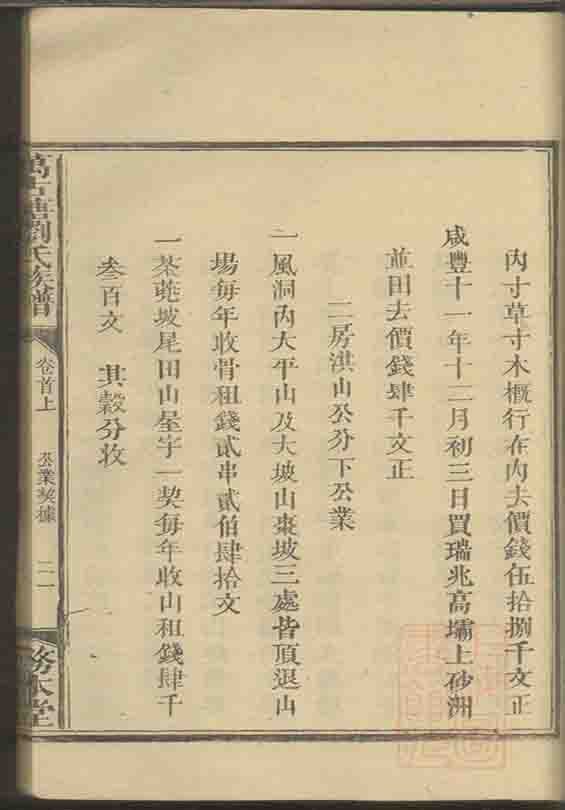 內寸草寸木概行在內去價錢伍拾捌千文正
咸豐十一年十二月初三日買瑞兆高壩上砂洲
並田去價錢肆千文正
二房洪山公分下公業
一風洞內大平山及大坡山棗坡三處皆頂退山
場每年收骨租錢貳串貳伯肆拾文
一茶蓢坡尾田山屋宇一契每年收山租錢肆千
叁百文 其穀分收
萬古塘劉氏族譜
卷首上
公業契據
二一
務本堂